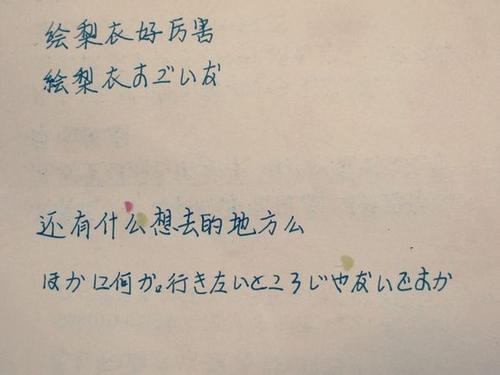 绘梨衣好厉害
絵梨衣すごいな
还有什么想去的地方么
ほかに何か。行きたいところじゃないですか